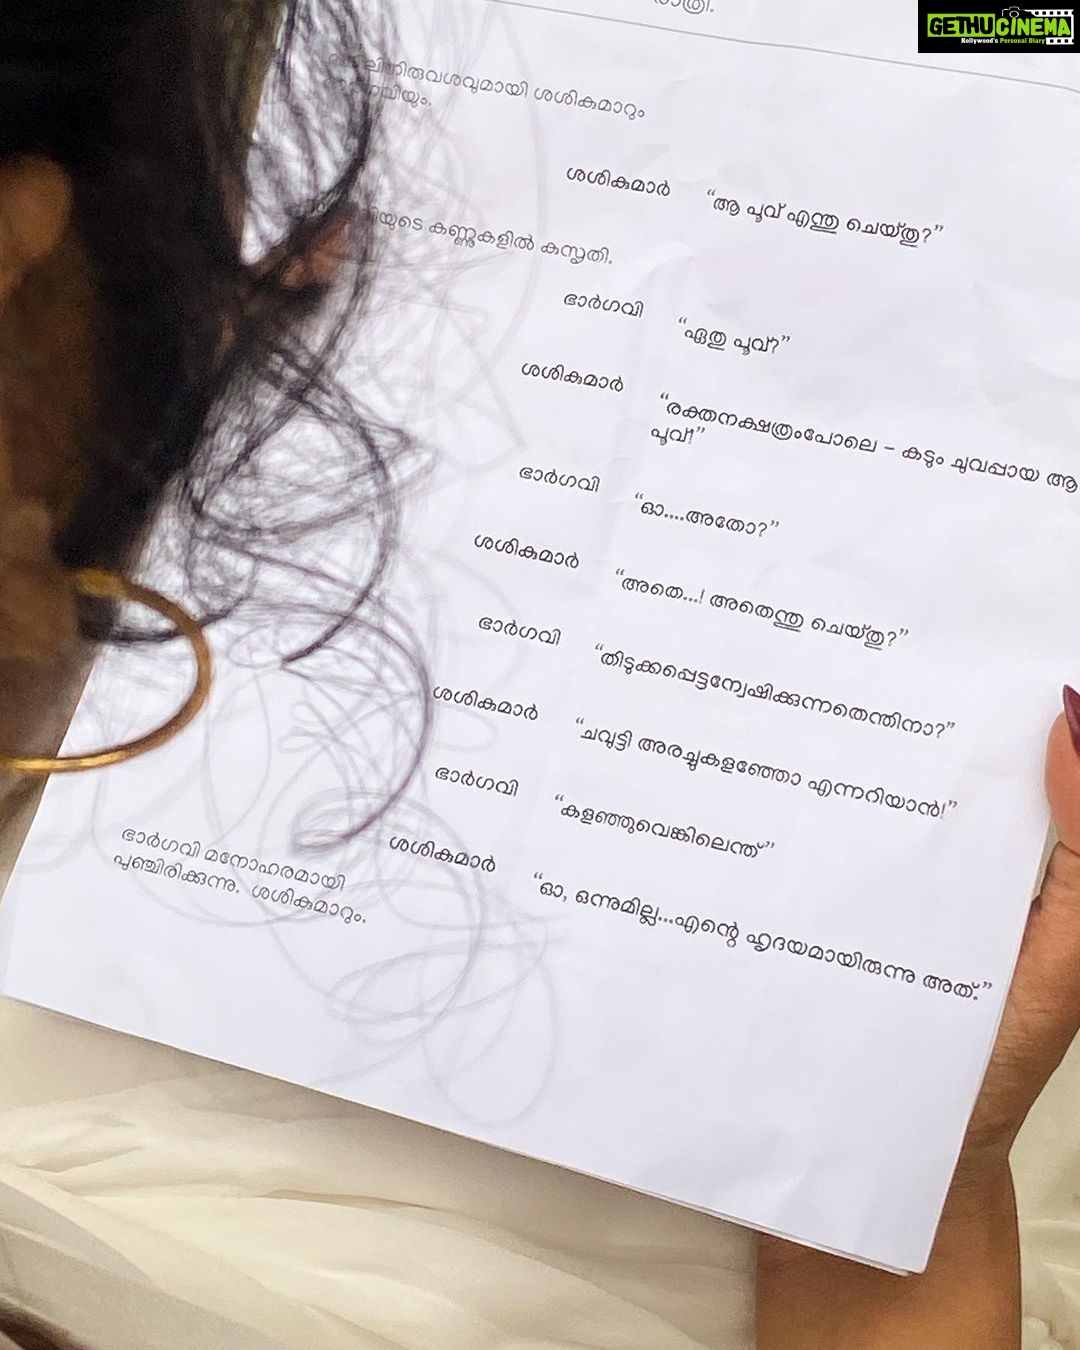 GETHUCINEMA
Kollywood's Personal Diary
ശശികുമാറും
ശശികുമാർ “ആ പൂവ് എന്തു ചെയ്തു?”
കണ്ണുകളിൽ കുസൃതി.
ഭാർഗവി “ഏതു പൂവ്?”
ശശികുമാർ “രക്തനക്ഷത്രംപോലെ – കടും ചുവപ്പായ ആ
പൂവ്!”
ഭാർഗവി “ഓ....അതോ?”
ശശികുമാർ “അതെ...! അതെന്തു ചെയ്തു?”
ഭാർഗവി “തിടുക്കപ്പെട്ടന്വേഷിക്കുന്നതെന്തിനാ?”
ശശികുമാർ “ചവുട്ടി അരച്ചുകളഞ്ഞോ എന്നറിയാൻ!”
ഭാർഗവി “കളഞ്ഞുവെങ്കിലെന്ത്”
ശശികുമാർ “ഓ, ഒന്നുമില്ല...എന്റെ ഹൃദയമായിരുന്നു അത്.”
ഭാർഗവി മനോഹരമായി
പുഞ്ചിരിക്കുന്നു. ശശികുമാറും.